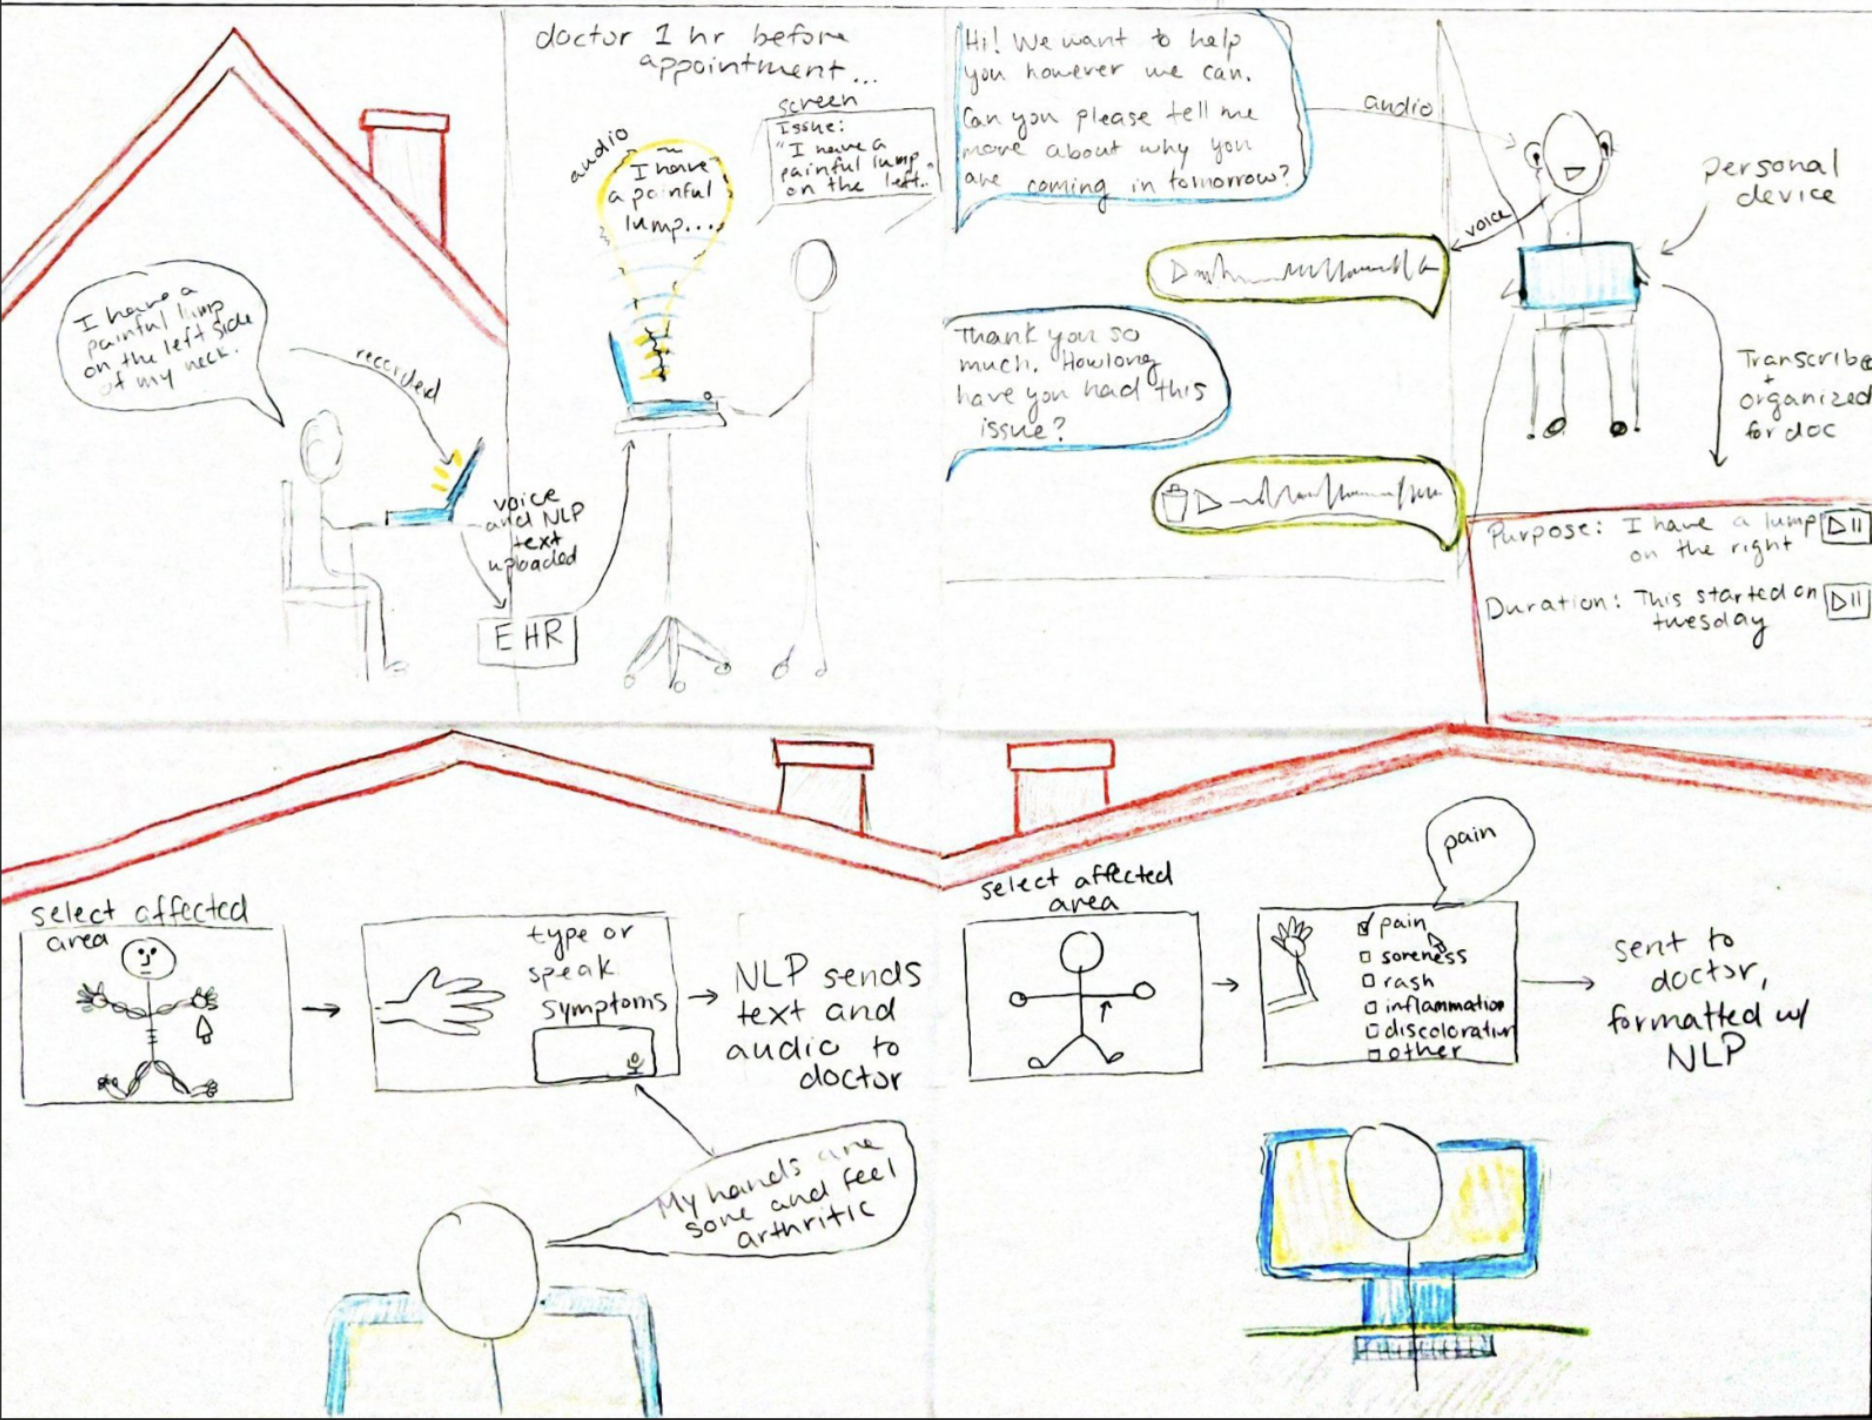 I have a
painful lump
on the left side
of my neck.
recorded
voice
and NLP
text
uploaded
EHR
doctor 1 hr before
appointment...
audio
I have
a painful
lump...
screen
Issue:
"I have a
painful lump
on the left..
Hi! We want to help
you however we can.
Can you please tell me
more about why you
are coming in tomorrow?
audio
voice
personal
device
Thank you so
much. How long
have you had this
issue?
Transcribed
+
organized
for doc
Purpose: I have a lump
on the right
Duration: This started on
tuesday
select affected
area
type or
speak
symptoms
NLP sends
text and
audio to
doctor
My hands are
sore and feel
arthritic
select affected
area
pain
pain
soreness
rash
inflammation
discoloration
other
sent to
doctor,
formatted w/
NLP